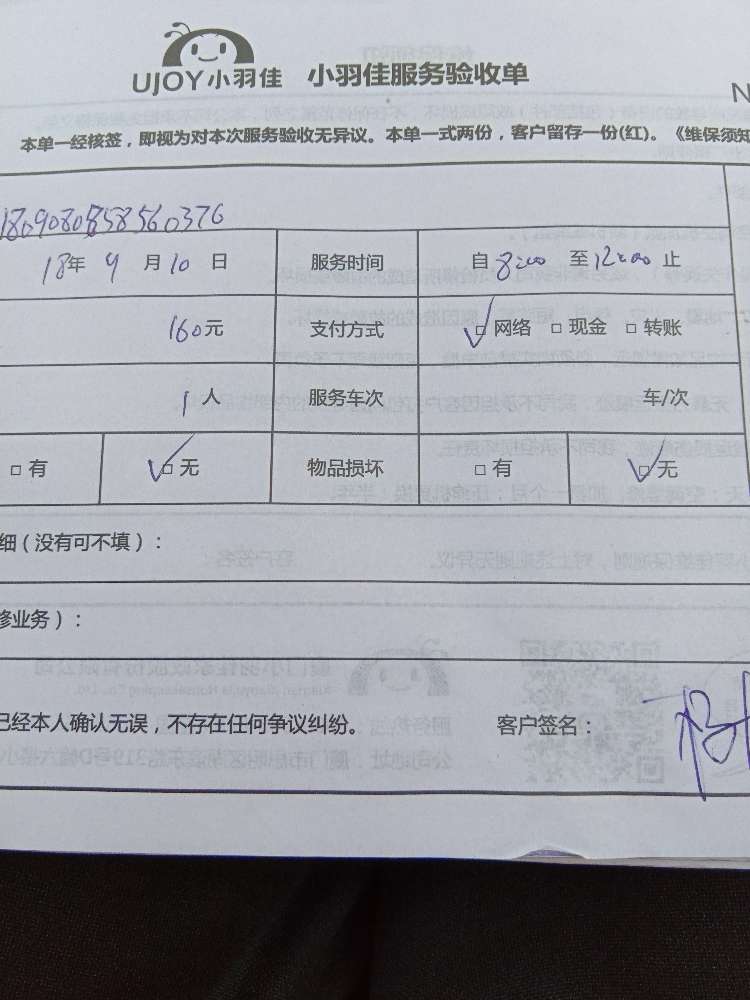 UJOY小羽佳 小羽佳服务验收单
N
本单一经核签，即视为对本次服务验收无异议。本单一式两份，客户留存一份(红)。《维保须知
1809080858560376
18年 9月10日 服务时间 自8:00 至12:00止
160元 支付方式 网络 现金 转账
1人 服务车次 车/次
有 无 物品损坏 有 无
细（没有可不填）：
修业务）：
已经本人确认无误，不存在任何争议纠纷。 客户签名：